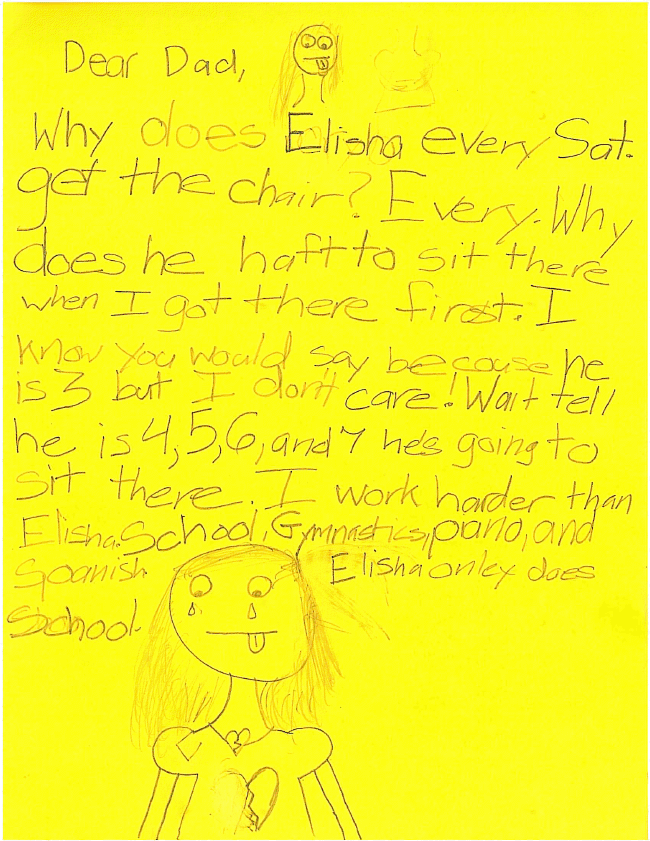 Dear Dad,
Why does Elisha every Sat.
get the chair? Every. Why
does he haft to sit there
when I got there first. I
know you would say becouse he
is 3 but I don't care! Wait tell
he is 4, 5, 6, and 7 he's going to
sit there. I work harder than
Elisha. School, Gymnastics, piano, and
Spanish. Elisha onley does
School.